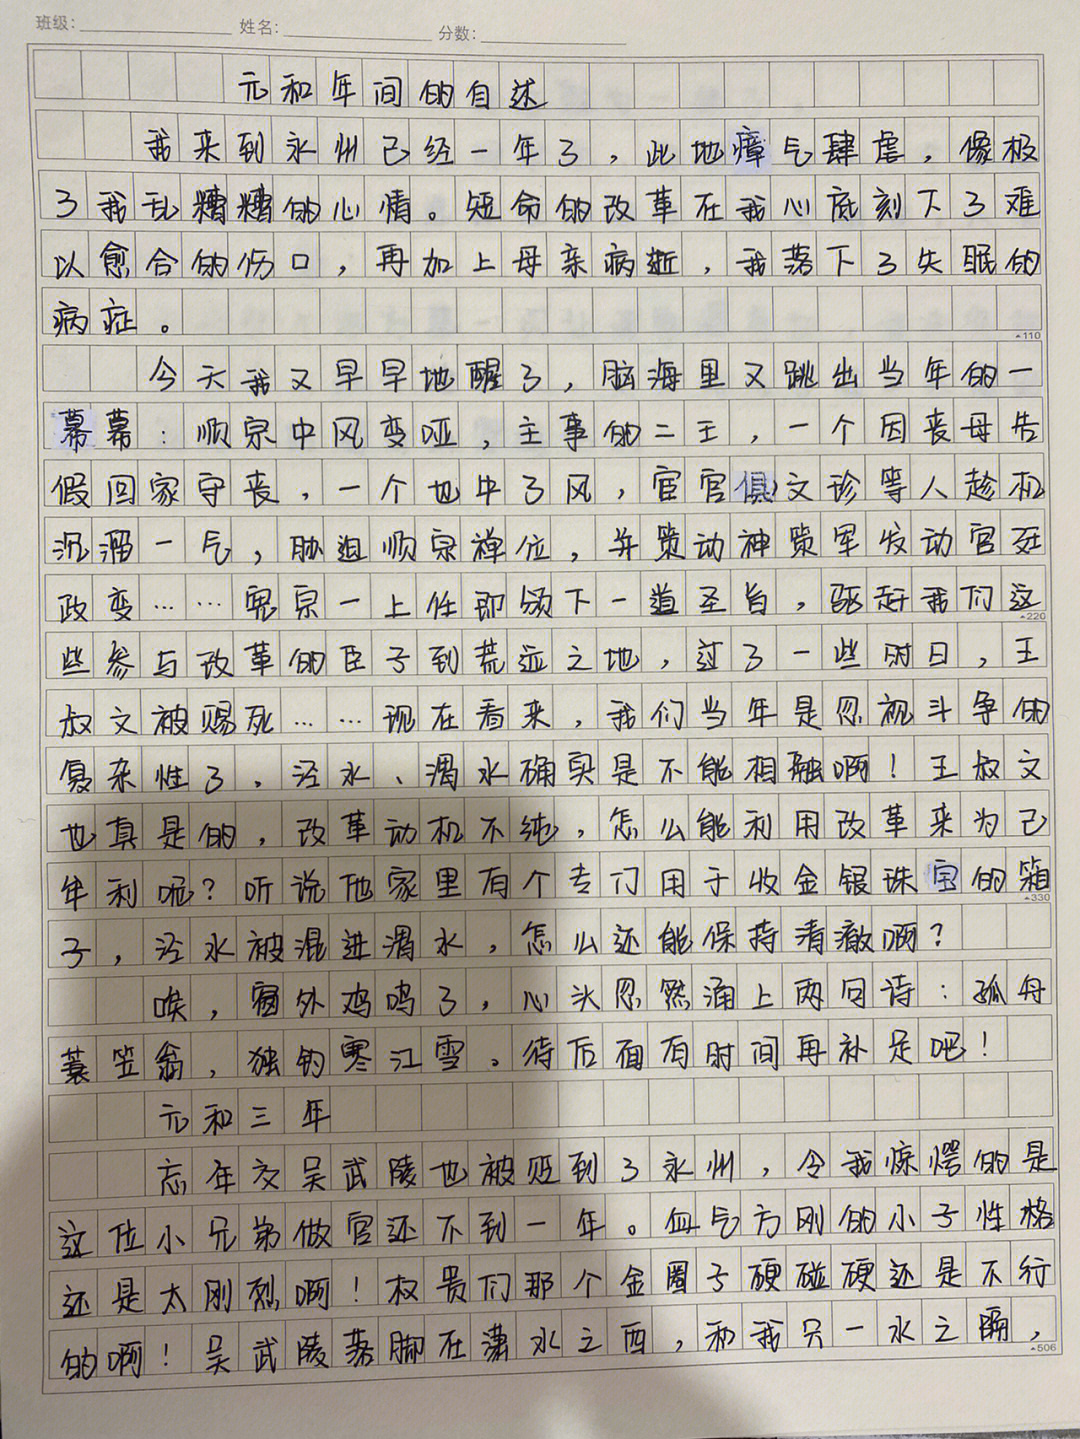 班级: 姓名: 分数:
元和年间的自述
我来到永州已经一年了，此地瘴气肆虐，像极
了我乱糟糟的心情。短命的改革在我心底刻下了难
以愈合的伤口，再加上母亲病逝，我落下了失眠的
病症。
110
今天我又早早地醒了，脑海里又跳出当年的一
幕幕：顺宗中风变哑，主事的二王，一个因丧母告
假回家守丧，一个也中了风，宦官俱文珍等人趁机
沆瀣一气，胁迫顺宗禅位，并策动神策军发动宫廷
政变……宪宗一上任即颁下一道圣旨，驱赶我们这
220
些参与改革的臣子到荒远之地，过了一些时日，王
叔文被赐死……现在看来，我们当年是忽视斗争的
复杂性了，泾水、渭水确实是不能相融啊！王叔文
也真是的，改革动机不纯，怎么能利用改革来为己
牟利呢？听说他家里有个专门用于收金银珠宝的箱
330
子，泾水被混进渭水，怎么还能保持清澈啊？
唉，窗外鸡鸣了，心头忽然涌上两句诗：孤舟
蓑笠翁，独钓寒江雪。待后面有时间再补足吧！
元和三年
忘年交吴武陵也被贬到了永州，令我惊愕的是
这位小兄弟做官还不到一年。血气方刚的小子性格
还是太刚烈啊！权贵们那个金圈子硬碰硬还是不行
的啊！吴武陵落脚在潇水之西，和我只一水之隔，
506